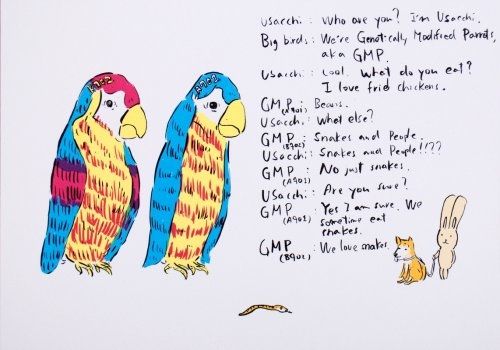 Usacchi : Who are you? I'm Usacchi.
Big birds : We're Genetically Modified Parrots,
aka GMP.
Usacchi : Cool. What do you eat?
I love frid chickens.
GMP (A902) : Beans.
Usacchi : What else?
GMP (B902) : Snakes and People.
Usacchi : Snakes and People!!??
GMP (A902) : No just snakes.
Usacchi : Are you sure?
GMP (A902) : Yes I am sure. We
sometime eat
snakes.
GMP (B902) : We love snakes.